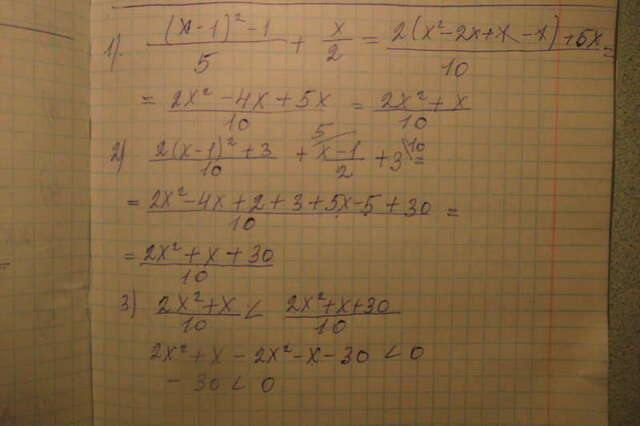 1). ((x-1)²-1)/5 + x/2 = (2(x²-2x+x-x)+5x)/10 =
= (2x²-4x+5x)/10 = (2x²+x)/10
2) (2(x-1)²+3)/10 + 5/ (x-1)/2 + 3\10 =
= (2x²-4x+2+3+5x-5+30)/10 =
= (2x²+x+30)/10
3) (2x²+x)/10 < (2x²+x+30)/10
2x²+x-2x²-x-30<0
-30<0